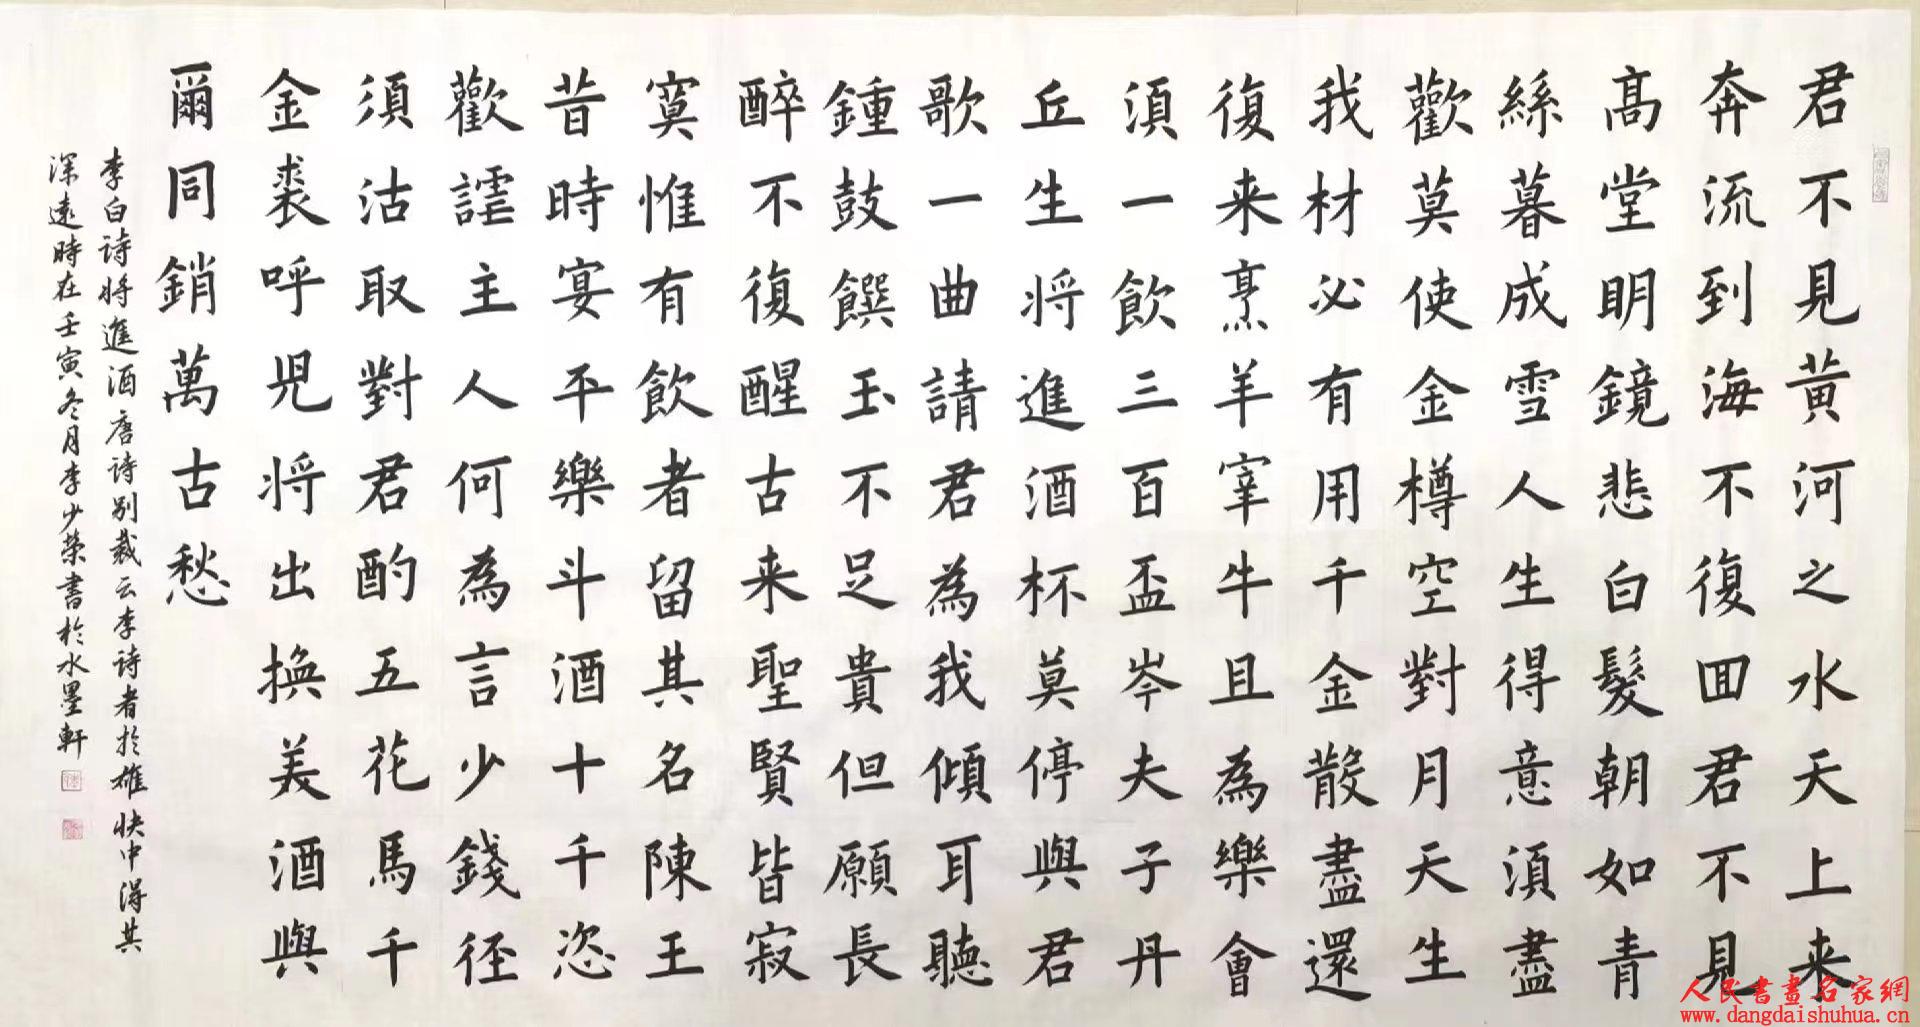 君不見黃河之水天上来
奔流到海不復回君不見
髙堂明鏡悲白髮朝如青
絲暮成雪人生得意須盡
歡莫使金樽空對月天生
我材必有用千金散盡還
復来烹羊宰牛且為樂會
須一飲三百盃岑夫子丹
丘生将進酒杯莫停與君
歌一曲請君為我傾耳聽
鍾鼓饌玉不足貴但願長
醉不復醒古来聖賢皆寂
寞惟有飲者留其名陳王
昔時宴平樂斗酒十千恣
歡謔主人何為言少錢径
須沽取對君酌五花馬千
金裘呼児将出換美酒與
爾同銷萬古愁
李白诗将進酒唐诗别裁云李诗者於雄快中得其
深遠時在壬寅冬月李少荣書於水墨軒
人民書畫名家網
www.dangdaishuhua.cn